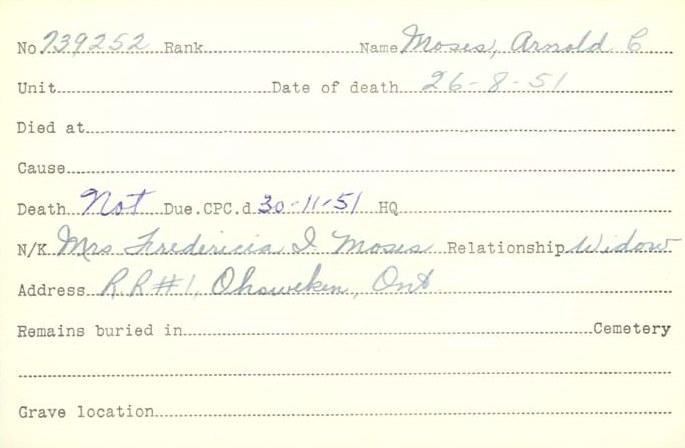 No 739252 Rank Name Moses, Arnold C
Unit Date of death 26-8-51
Died at
Cause
Death Not Due.CPC.d 30-11-51 HQ
N/K Mrs Fredericia I. Moses Relationship Widow
Address R.R #1, Ohsweken, Ont
Remains buried in Cemetery
Grave location